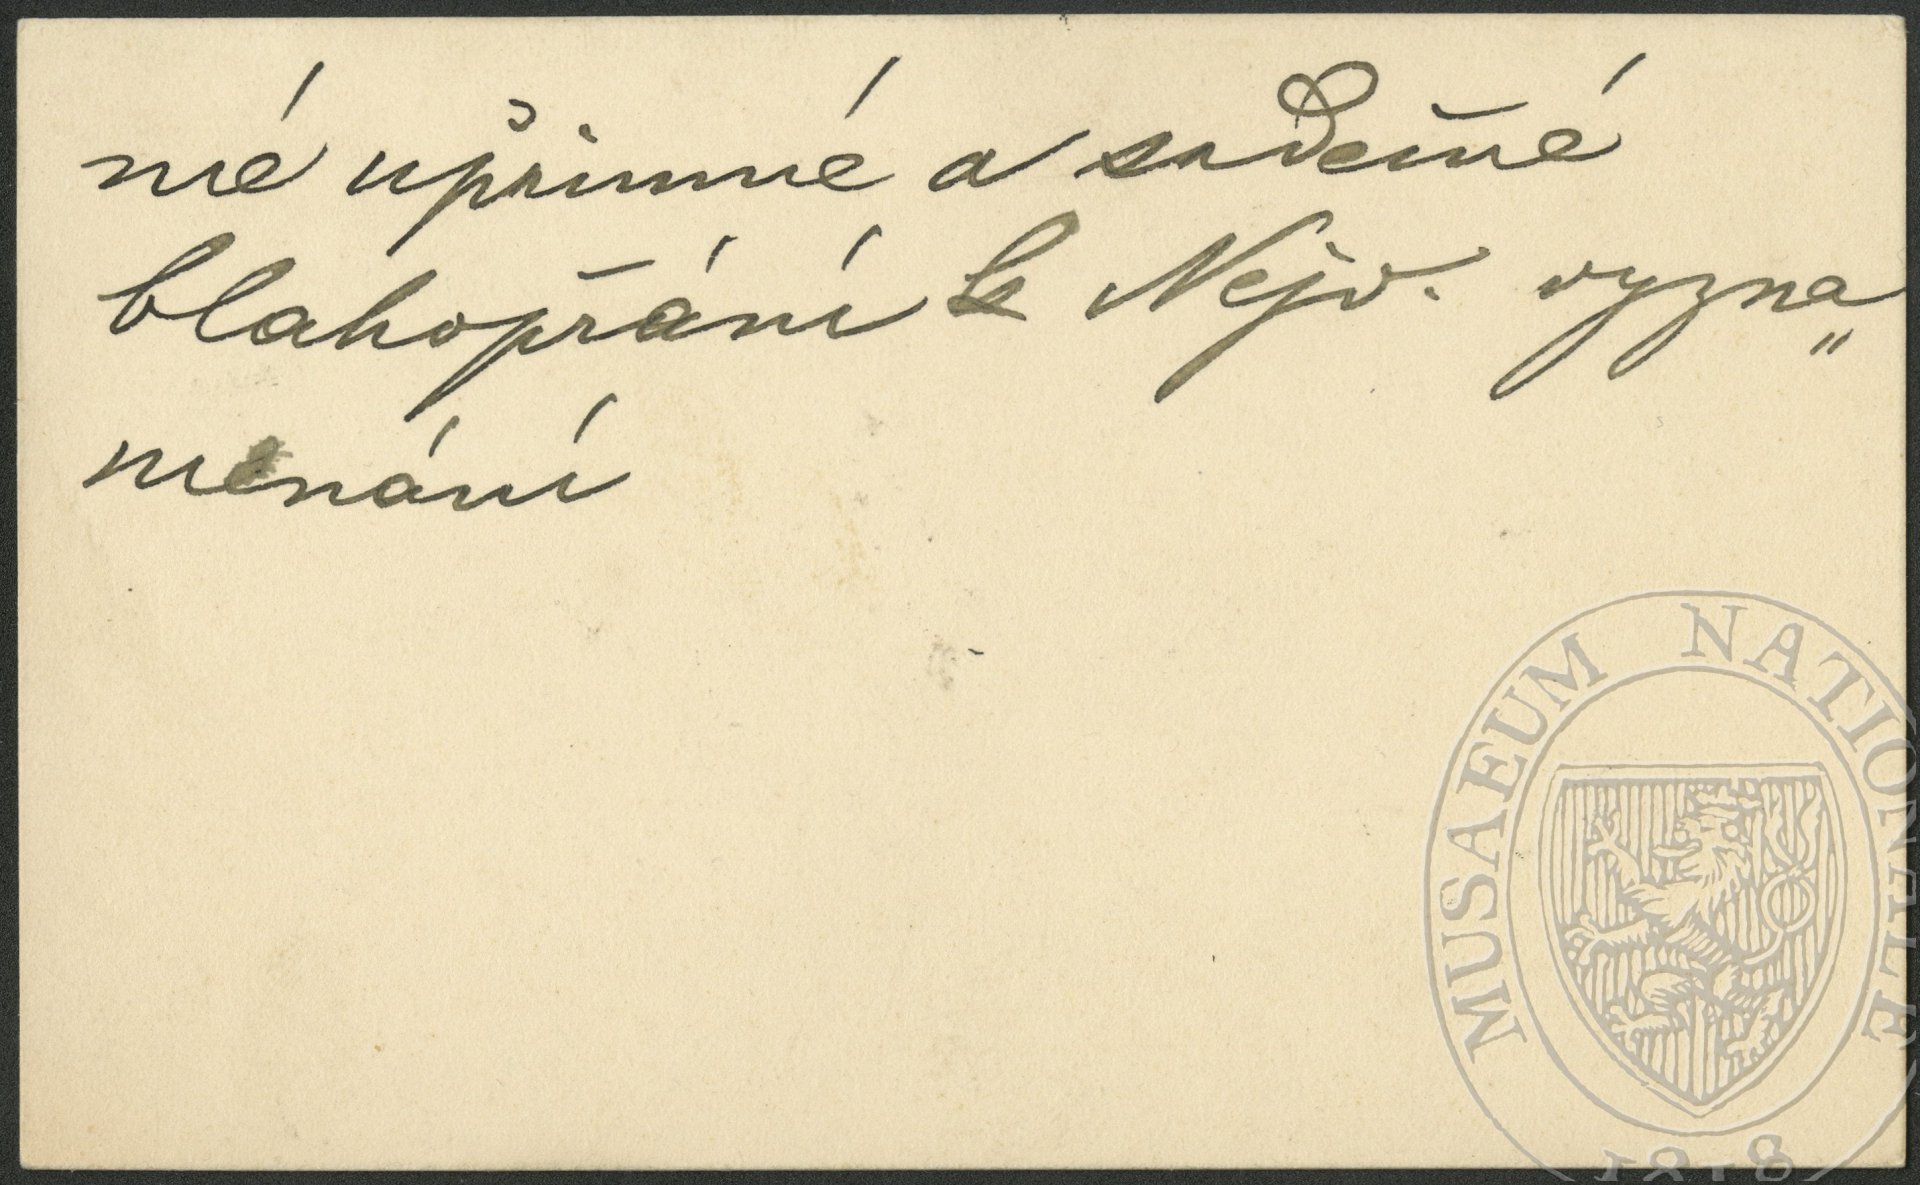 mé upřimné a srdečné
blahopřání k Nejv. vyzna„
menání
MUSAEUM NATIONALE
1818